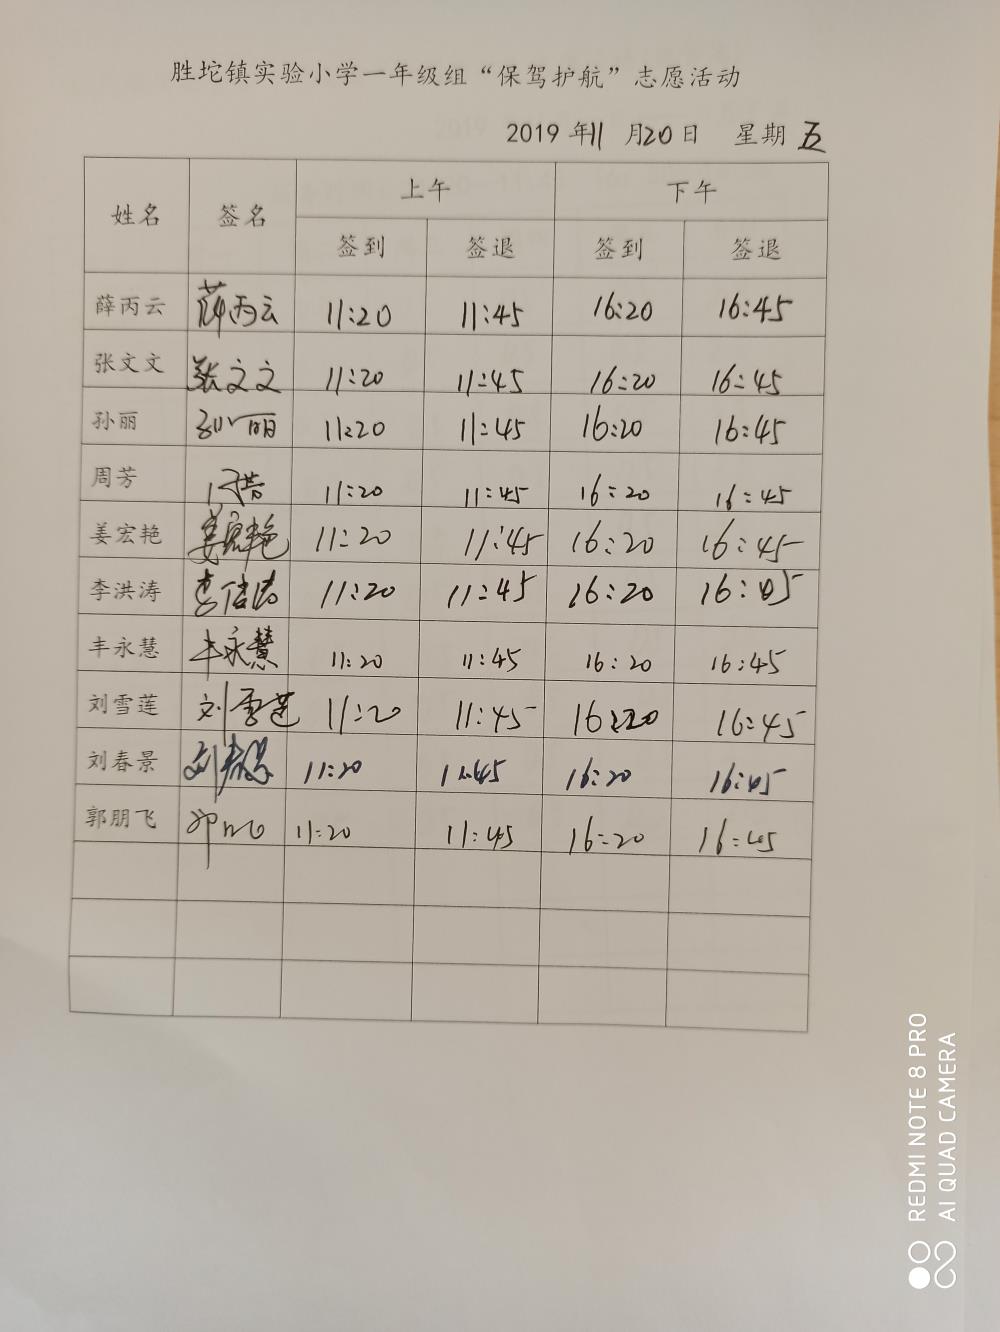 胜坨镇实验小学一年级组“保驾护航”志愿活动
2019 年11 月20日 星期 五
姓名 签名 上午 下午
签到 签退 签到 签退
薛丙云 薛丙云 11:20 11:45 16:20 16:45
张文文 张文文 11:20 11:45 16:20 16:45
孙丽 孙丽 11:20 11:45 16:20 16:45
周芳 周芳 11:20 11:45 16:20 16:45
姜宏艳 姜宏艳 11:20 11:45 16:20 16:45
李洪涛 李洪涛 11:20 11:45 16:20 16:45
丰永慧 丰永慧 11:20 11:45 16:20 16:45
刘雪莲 刘雪莲 11:20 11:45 16:20 16:45
刘春景 刘春景 11:20 11:45 16:20 16:45
郭朋飞 11:20 11:45 16:20 16:45
REDMI NOTE 8 PRO
AI QUAD CAMERA